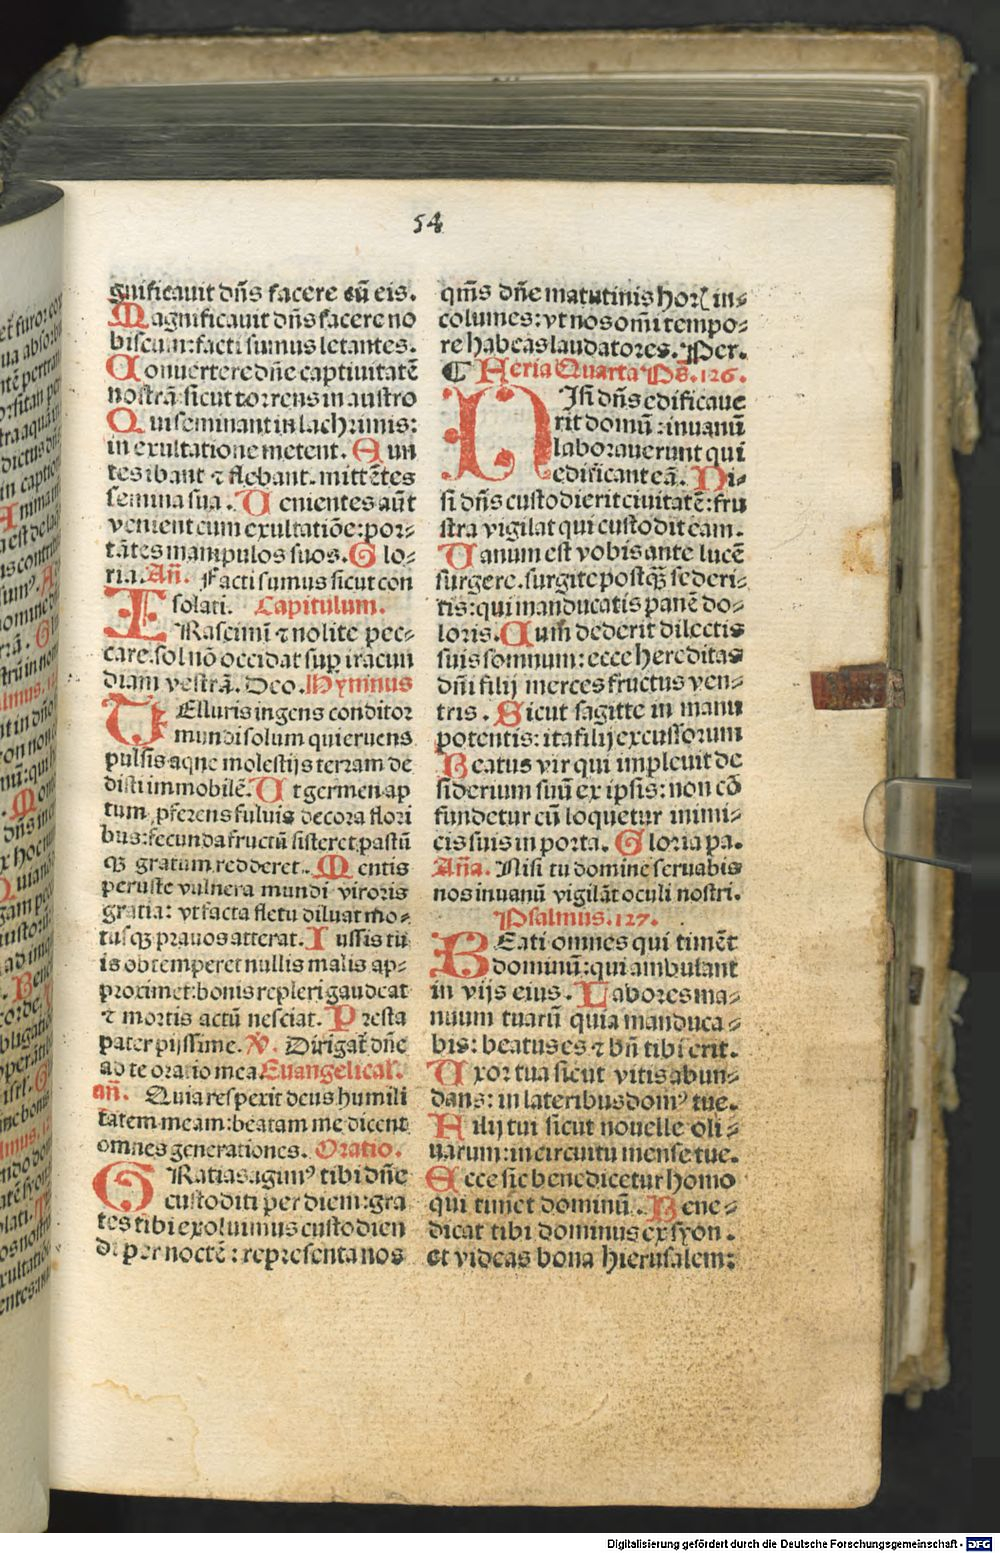 54
gnificauit dñs facere cũ eis.
Magnificauit dñs facere no
biscum: facti sumus letantes.
Conuertere dñe captiuitatẽ
nostrã: sicut torrens in austro
Qui seminant in lachrimis:
in exultatione metent. Eun
tes ibant ⁊ flebant. mittẽtes
semina sua. Uenientes aũt
venient cum exultatiõe: por⸗
tãtes manipulos suos. Glo⸗
ria. Añ. Facti sumus sicut con
solati. Capitulum.
IRascimĩ ⁊ nolite pec⸗
care. sol nõ occidat suꝑ iracun
diam vestrã. Deo. Hymnus
TElluris ingens conditor
mundi solum qui eruens
pulsis aque molestijs terram de
disti immobilẽ. Ut germen ap
tum ꝓferens fuluis decora flori
bus: fecunda fructũ sisteret. pastũ
qꝫ gratum redderet. Mentis
peruste vulnera mundi viroris
gratia: vt facta fletu diluat mo⸗
tusqꝫ prauos atterat. Iussis tu
is obtemperet nullis malis ap⸗
proximet: bonis repleri gaudeat
⁊ mortis actũ nesciat. Presta
pater pijssime. V. Dirigat̃ dñe
ad te oratio mea. Euangelical.
añ. Quia respexit deus humili
tatem meam: beatam me dicent
omnes generationes. Oratio.
GRatias agimꝰ tibi dñe
custoditi per diem: gra
tes tibi exoluimus custodien
di per noctẽ: representa nos
qm̃s dñe matutinis horꝭ in⸗
columes: vt nos om̃i tempo⸗
re habeas laudatores. Per.
¶ Feria Quarta Ps. 126.
NIsi dñs edificaue
rit domũ: in uanũ
laborauerunt qui
edificant eã. Ni⸗
si dñs custodierit ciuitatẽ: fru
stra vigilat qui custodit eam.
Uanum est vobis ante lucẽ
surgere. surgite postqꝫ̃ sederi⸗
tis: qui manducatis panẽ do⸗
loris. Cum dederit dilectis
suis somnum: ecce hereditas
dñi filij merces fructus ven⸗
tris. Sicut sagitte in manu
potentis: ita filij excussorum
Beatus vir qui impleuit de
siderium suũ ex ipsis: non cõ
fundetur cũ loquetur inimi⸗
cis suis in porta. Gloria pa.
Aña. Nisi tu domine seruabis
nos inuanũ vigilãt oculi nostri.
Psalmus. 127.
BEati omnes qui timẽt
dominũ: qui ambulant
in vijs eius. Labores ma⸗
nuum tuarũ quia manduca⸗
bis: beatus es ⁊ bñ tibi erit.
Uxor tua sicut vitis abun⸗
dans: in lateribus domꝰ tue.
Filij tui sicut nouelle oli⸗
uarum: in circuitu mense tue.
Ecce sic benedicetur homo
qui timet dominũ. Bene⸗
dicat tibi dominus ex syon.
et videas bona hierusalem:
Digitalisierung gefördert durch die Deutsche Forschungsgemeinschaft - DFG